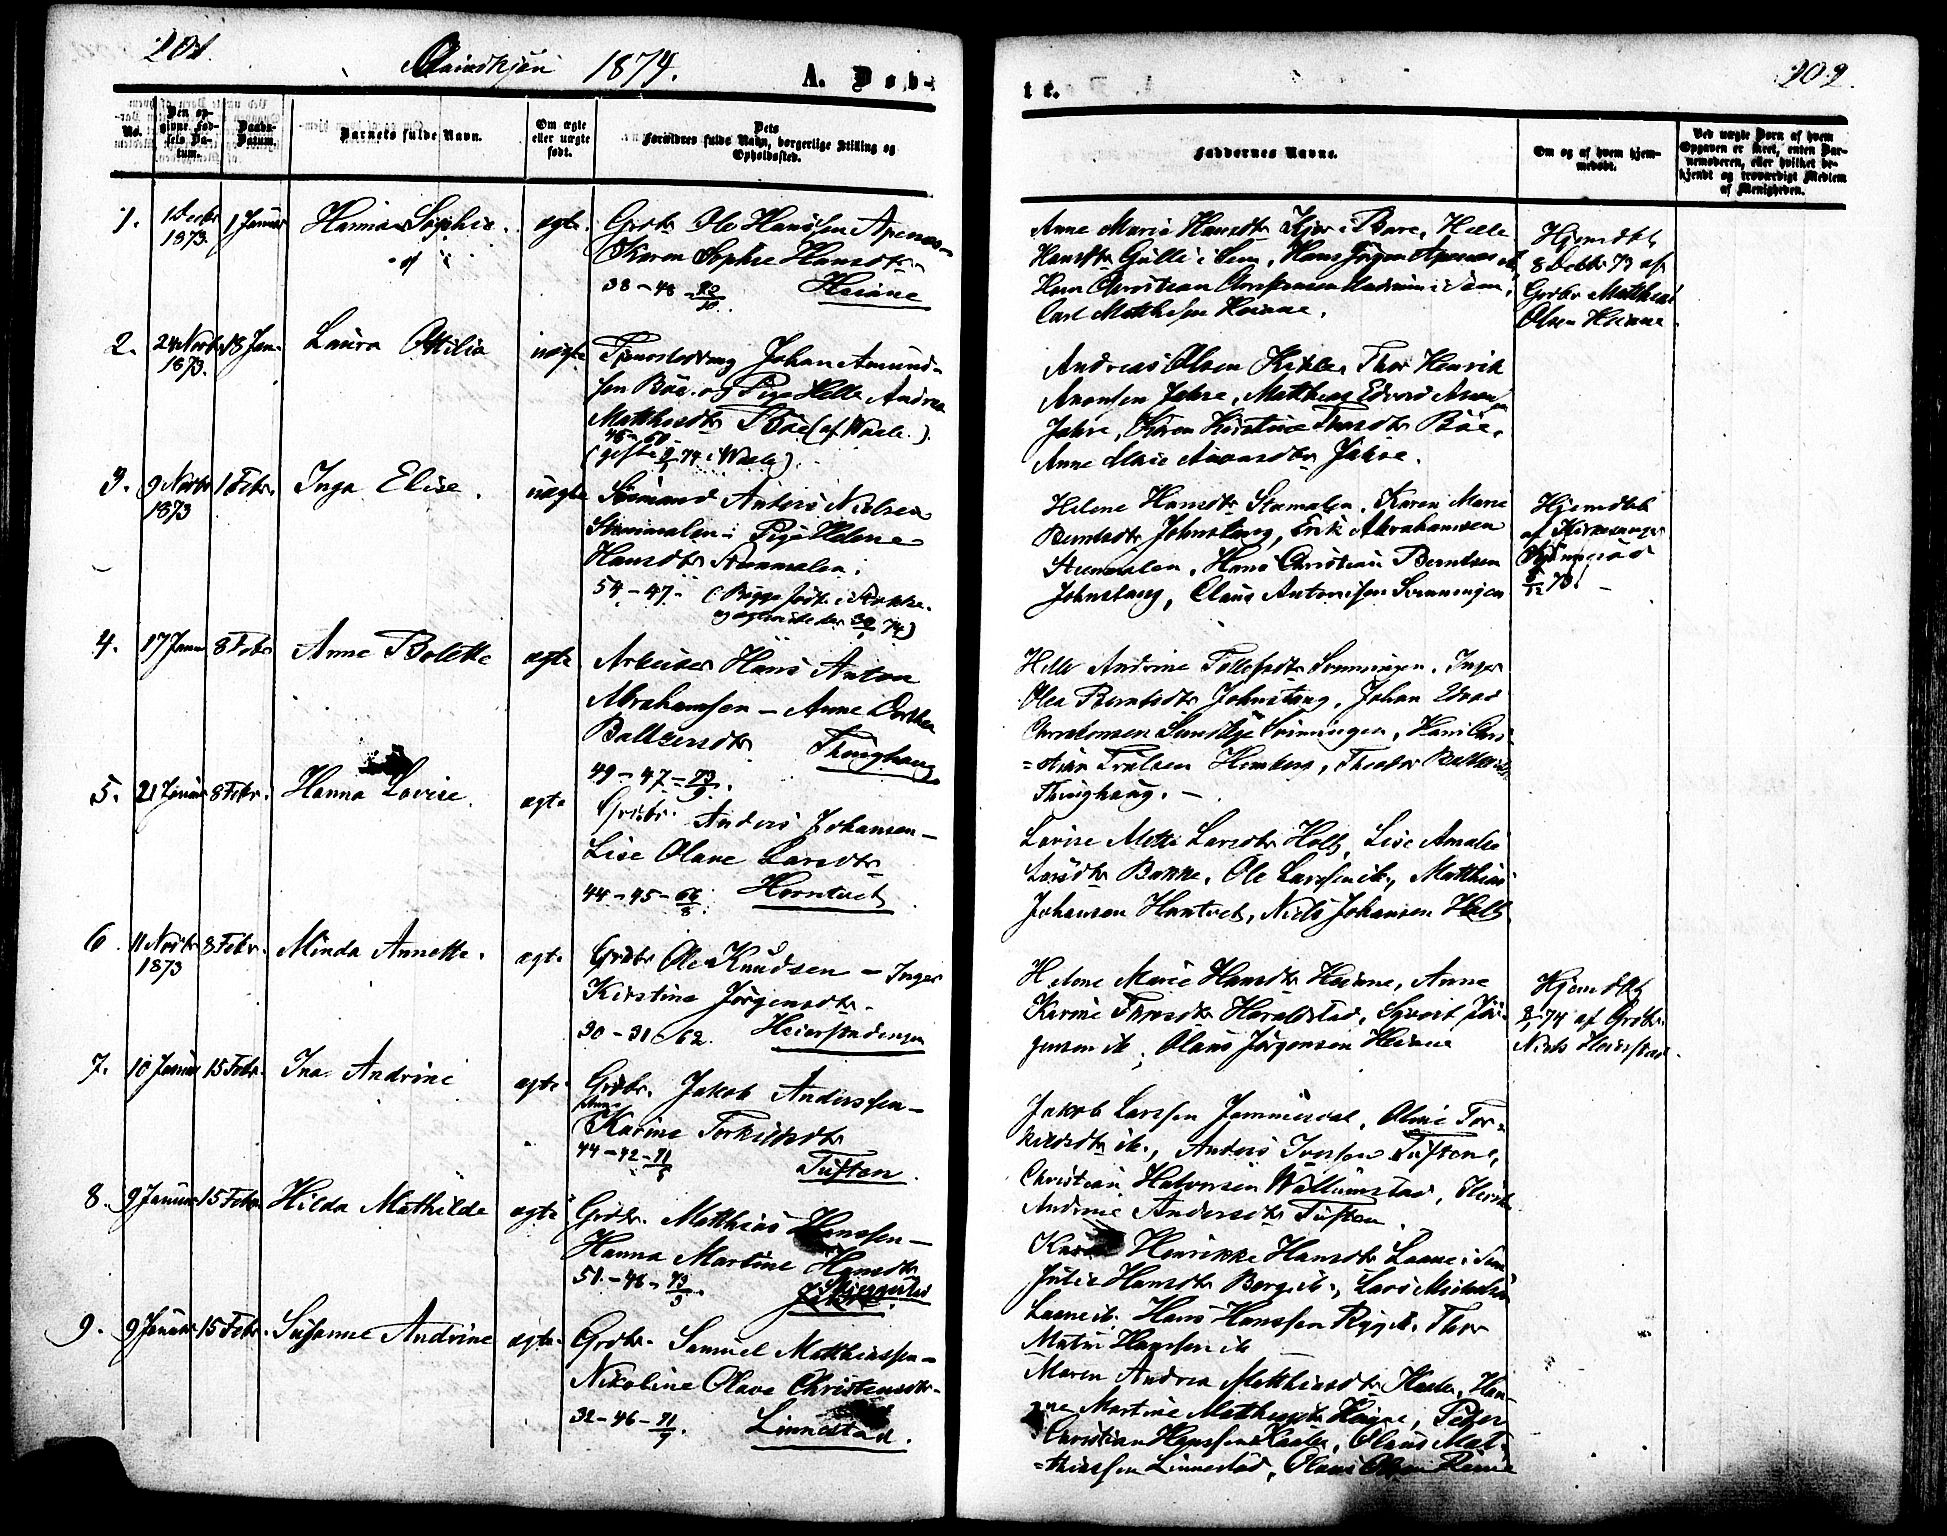 201.
1874.
A. Døb-
No.
Den op-
givne Fød-
sels Da-
tum.
Daabs-
Datum.
Barnets fulde Navn.
Om ægte
eller uægte
født.
Dets
Forældres fulde Navn, borgerlige Stilling og
Opholdssted.
1.
1 Decbr
1873.
1 Januar
Hanna Sophie.
ægte
Grdbr Ole Hanssen Apenæs
Karen Sophie Hansdtr
38-48-73/10.
Heiane
2.
24 Novbr
1873.
18 Jan.
Laura Otilia
uægte
Johan Amund-
sen Böe og Pige Helle Andrea
Matthisdtr Böe (af Vaale.)
48-50
(gift 74 i Vaale)
3.
9 Novbr
1873
1 Febr.
Inga Elise.
uægte
Sömand Anders Nielsen
Strømmalen. Pige Helene
Hansdtr Strømmalen.
54-47. (Begge födte i Stokke.
74)
4.
17 Janu
8 Febr
Anne Bolette
ægte
Arbeider Hans Anton
Abrahamsen - Anne Dorthea
Baltzersdtr Thinghaug
49-47-73/9.
5.
21 Januar
8 Febr.
Hanna Lovise.
ægte
Grdbr. Anders Johansen-
Lise Olave Larsdtr
44-45-66/8. Horntvet
6.
11 Novbr
1873
8 Febr.
Minda Annette.
ægte
Grdbr Ole Knudsen - Inger
Kirstine Jörgensdtr.
30-31-62. Heierstadengen
7.
10 Januar
15 Febr.
Ina Andrine
ægte
Grdbr. Jakob Anderssen-
Karine Torkildsdtr
44-42-71
Tuften.
8.
9 Januar
15 Febr.
Hilda Mathilde
ægte
Grdbr. Matthias Hanssen-
Hanna Martine Hansdtr
51-46-73/5.
9.
9 Januar
15 Febr.
Susanne Andrine
ægte
Grdbr. Samuel Matthiassen-
Nikoline Olava Christensdtr-
32-46-71/9. Linnestad.
202.
te.
Faddernes Navne.
Om og af hvem hjem-
medøbt.
Ved uægte Børn af hvem
Opgaven er skeet, enten Bar-
nemoderen, eller hvilket be-
kjendt og troværdigt Medlem
af Menigheden.
Anne Maria Hansdtr Kjær i Borre, Helle
Hansdtr Gulli i Sem, Hans Jørgen Apenæs
Hans Christian Christensen i Sem,
Carl Matthisen Heiane.
Hjemdöbt
8 Decbr 73 af
Grdbr Matthias
Olsen Heiane
Andreas Olsen, Thor Henrik
Aronsen Jahre, Matthias Edvard Aronsen
Jahre, Karen Kirstine Thorsdtr Böe,
Anne Marie Aronsdtr Jahre.
Helene Hansdtr Strømmalen, Karen Marie
Berntsdtr Johnstang, Erik Abrahamsen
Strømmalen, Hans Christian Berntsen
Johnstang, Claus Antonisen Sønningen
Hjemdöbt
af Kirkesanger
Helle Andrine Tollefsdtr Sønningen, Inger
Olea Berntsdtr Johnstang, Johan Edvard
Sønningen, Hans Chri-
=stian Trulsen, Theodor
Thinghaug. -
Lovise Mette Larsdtr Holt, Lise Amalie
Larsdtr Bakke, Ole Larssen ib., Matthias
Johansen Horntvet, Niels Johansen Holt
Helene Marie Hansdtr Heiane, Anne
Karine Thorsdtr Haraldstad, Syvert Jör-
gensen ib., Olaus Jörgensen Heiane
Hjemdöbt
74 af Grdbr.
Niels Heierstad.
Jakob Larssen Jemmesdal, Oline Tor=
kildsdtr ib., Anders Iverssen Tuftene,
Christian Halvorsen Wallumstad,
Andrine Andersdtr Tuften.
Henrikke Hansdtr Laane i Sem
Julie Hansdtr Berg ib., Lars Mikkelsen
Laane ib. Hans Hanssen Ryg ib. Thor
Hanssen ib
Maren Andrea Matthiasdtr, Han-
ne Martine, Peder
Christian Hanssen, Olaus Mat-
=thiassen Linnestad, Olaus Olsen